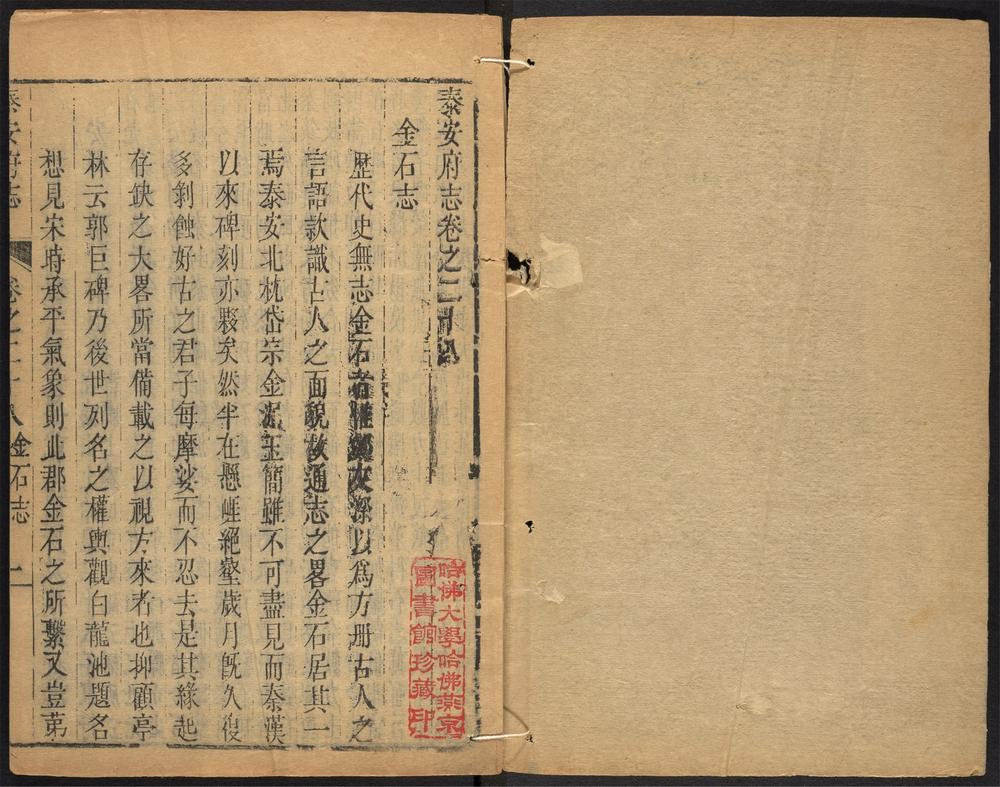 泰安府志卷之二十八
金石志
歷代史無志金石者惟鄭夾漈以爲方冊古人之
言語款識古人之面貌故通志之畧金石居其一
焉泰安北枕岱宗金泥玉簡雖不可盡見而秦漢
以來碑刻亦夥矣然半在懸崕絕壑歲月旣久復
多剝蝕好古之君子每摩娑而不忍去是其緣起
存缺之大畧所當備載之以視方來者也抑顧亭
林云郭巨碑乃後世列名之權輿觀白龍池題名
想見宋時承平氣象則此郡金石之所繫又豈苐
泰安府志 卷之二十八 金石志 一
哈佛大學哈佛燕京
圖書館珍藏印